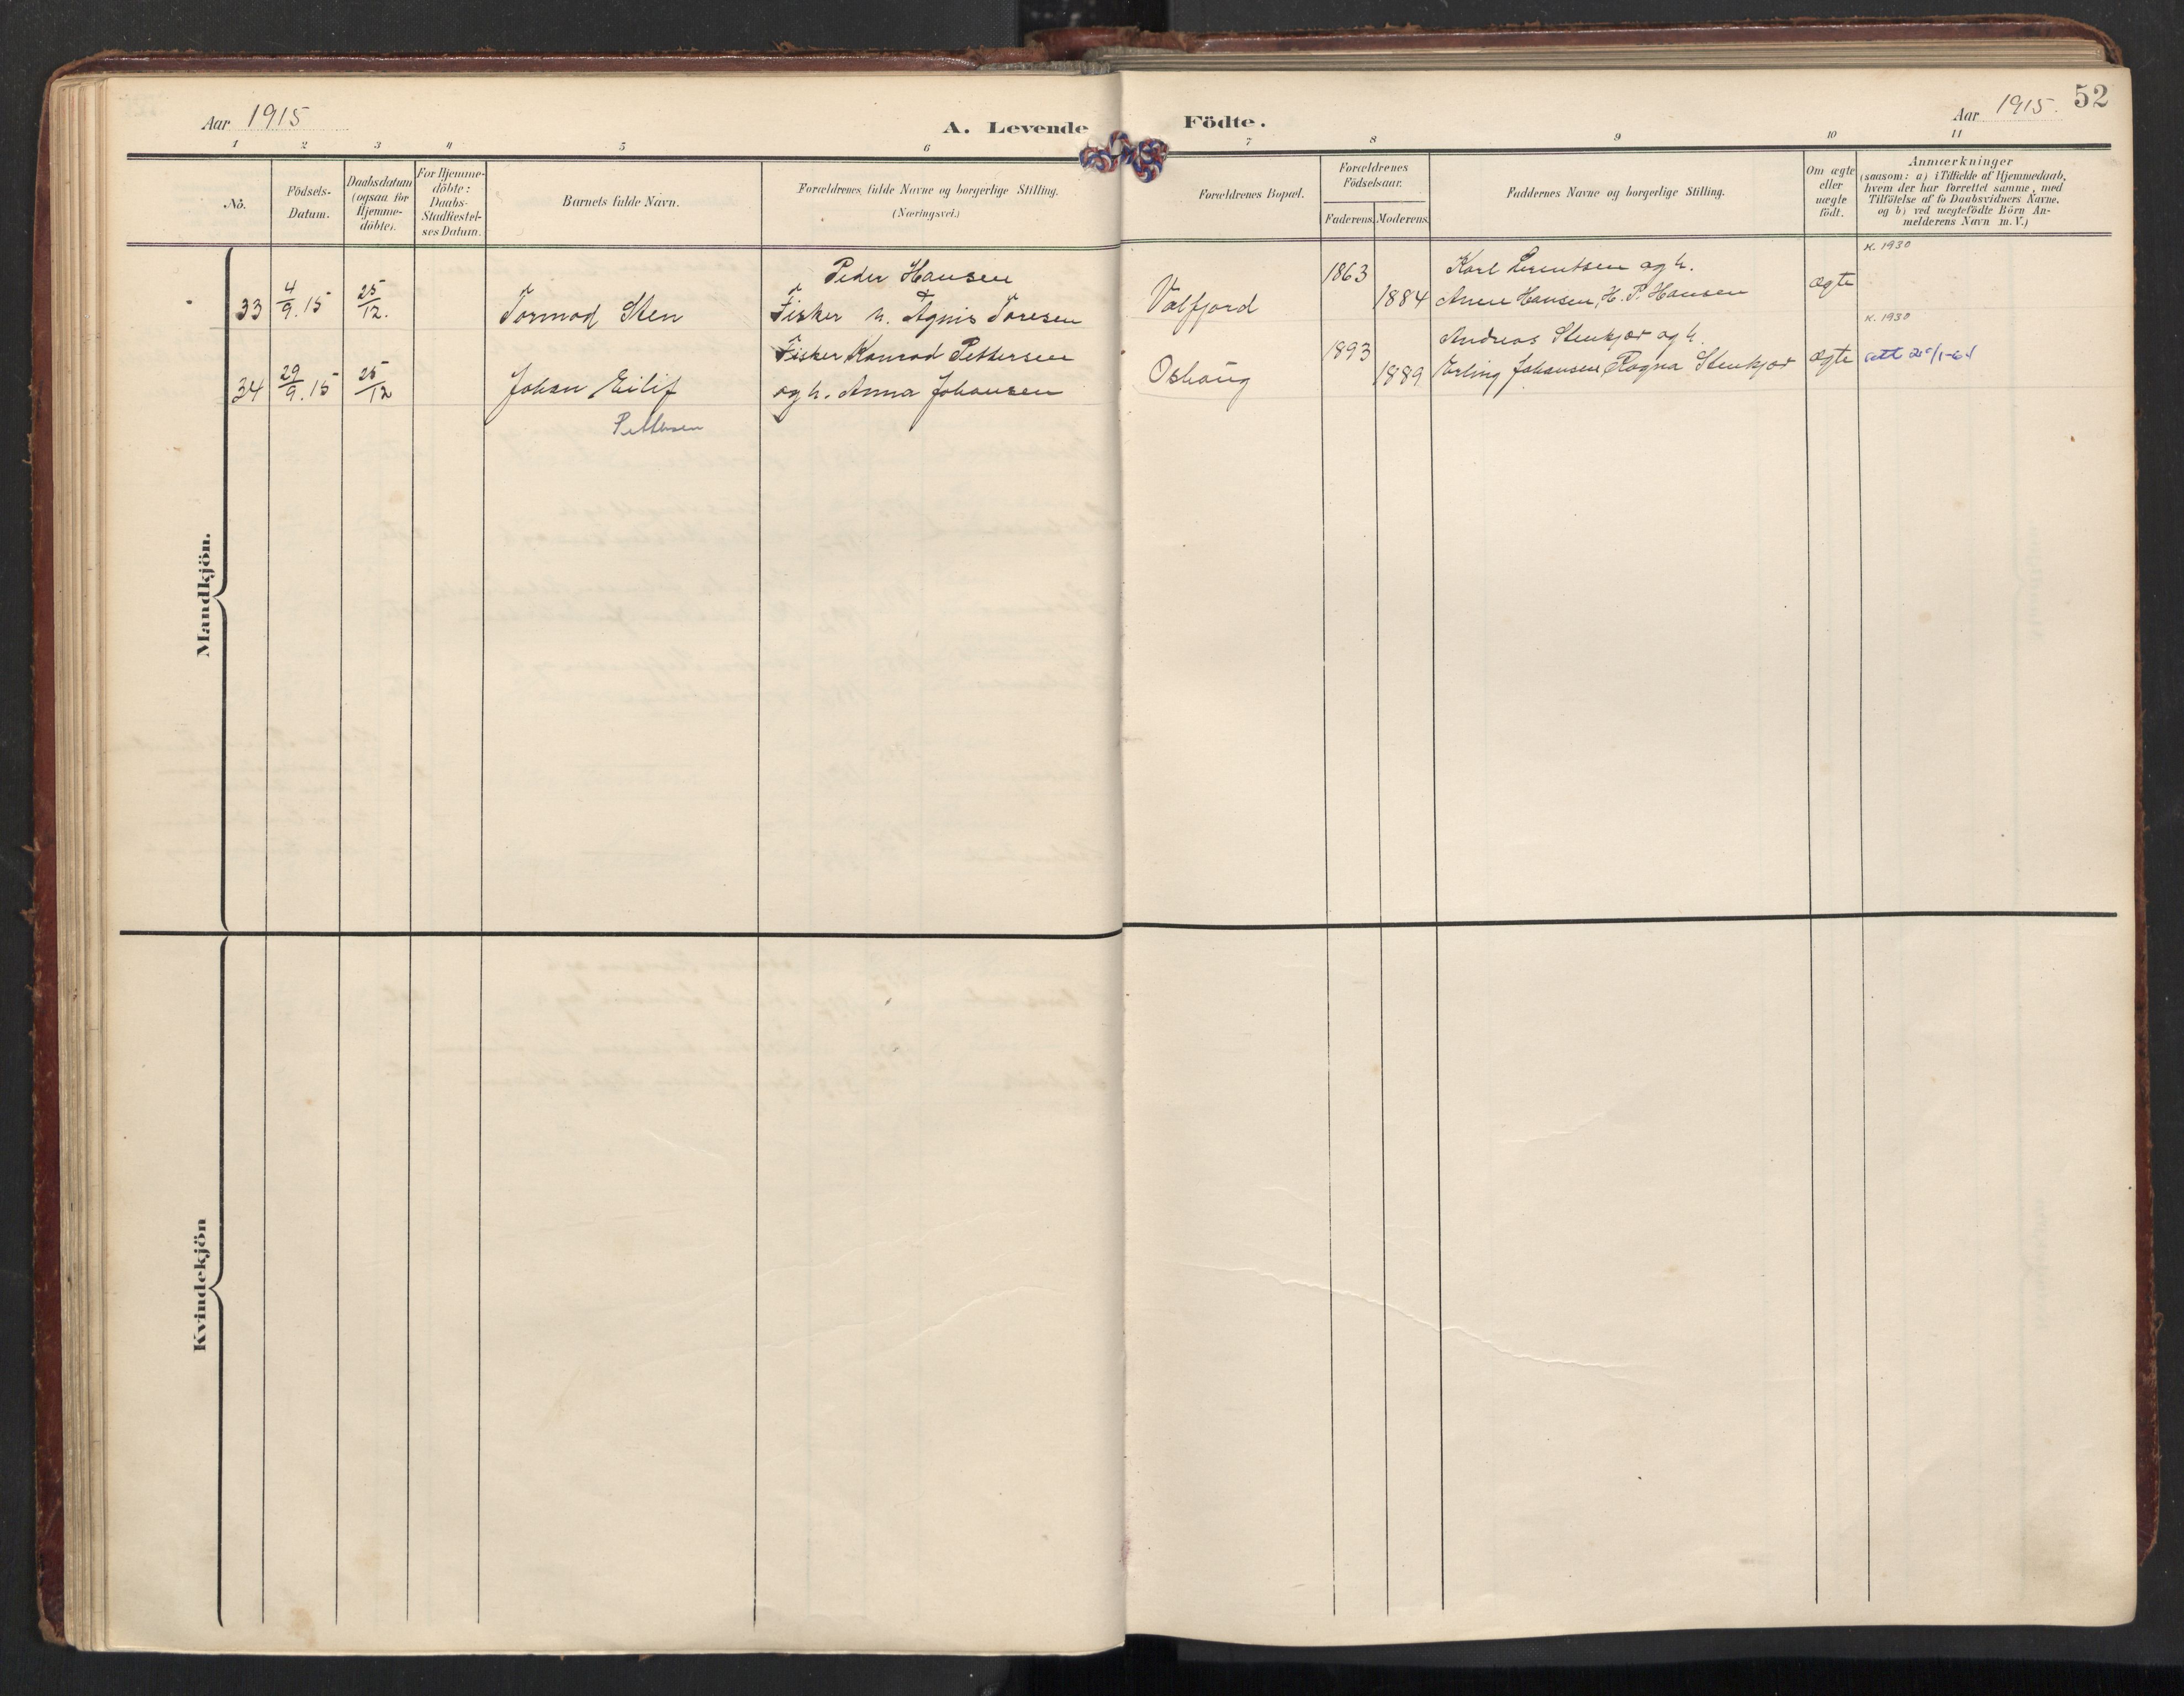 Aar 1915
A. Levende
Födte.
Aar 1915.
52
1 2 3 4 5 6 7 8 9 10 11
No.
Födsels-
Datum.
Daabsdatum
(ogsaa for
Hjemme-
döbte).
For Hjemme-
döbte:
Daabs-
Stadfæstel-
ses Datum.
Barnets fulde Navn.
Forældrenes fulde Navne og borgerlige Stilling.
(Næringsvei.)
Forældrenes Bopæl.
Forældrenes
Födselsaar.
Faderens. Moderens.
Faddernes Navne og borgerlige Stilling.
Om ægte
eller
uægte
födt.
Anmærkninger
(saasom: a) i Tilfælde af Hjemmedaab,
hvem der har forrettet samme, med
Tilföielse af to Daabsvidners Navne,
og b) ved uægtefödte Börn An-
melderens Navn m. V.)
Mandkjön.
33
4/9.15
25/12.
Tormod Sten
Peder Hansen
Fisker h. Agnis Toresen
Valfjord
1863
1884
Karl Lerentsen og h.
Anne Hansen, H. P. Hansen
ægte
K. 1930
34
29/9.15
25/12
Johan Eilif
Pettersen
Fisker Konrad Pettersen
og h. Anna Johansen
Oshaug
1893
1889
Andreas Stenkjær og h.
Erling Johansen, Ragna Stenkjær
ægte
K. 1930
Kvindekjön